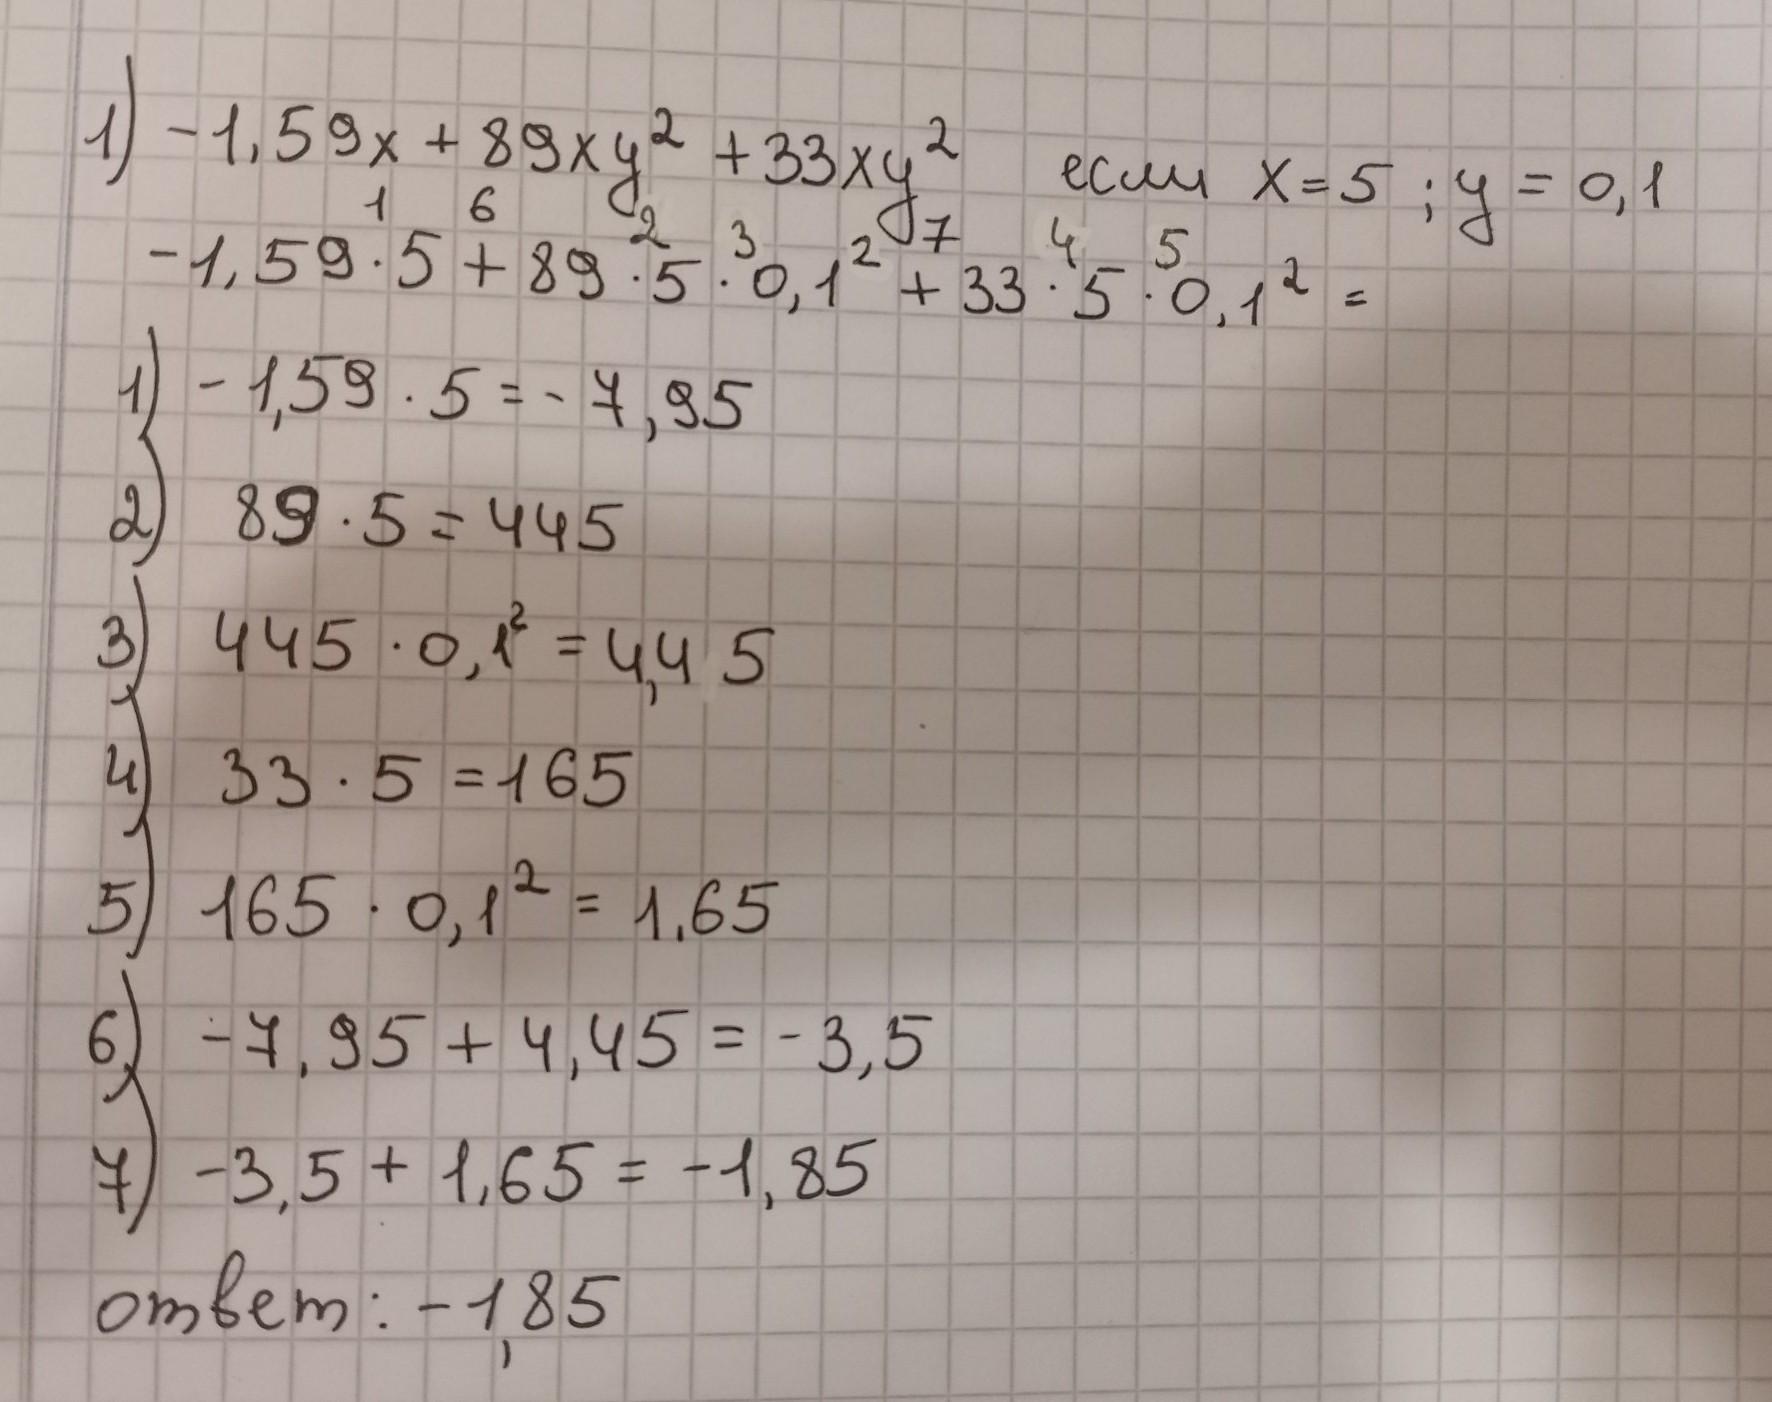 1) -1,59x + 89xy² + 33xy² если x = 5 ; y = 0,1
1 6 2 3 7 4 5
-1,59 · 5 + 89 · 5 · 0,1² + 33 · 5 · 0,1² =
1) -1,59 · 5 = -7,95
2) 89 · 5 = 445
3) 445 · 0,1² = 4,45
4) 33 · 5 = 165
5) 165 · 0,1² = 1.65
6) -7,95 + 4,45 = -3,5
7) -3,5 + 1,65 = -1,85
ответ: -1,85